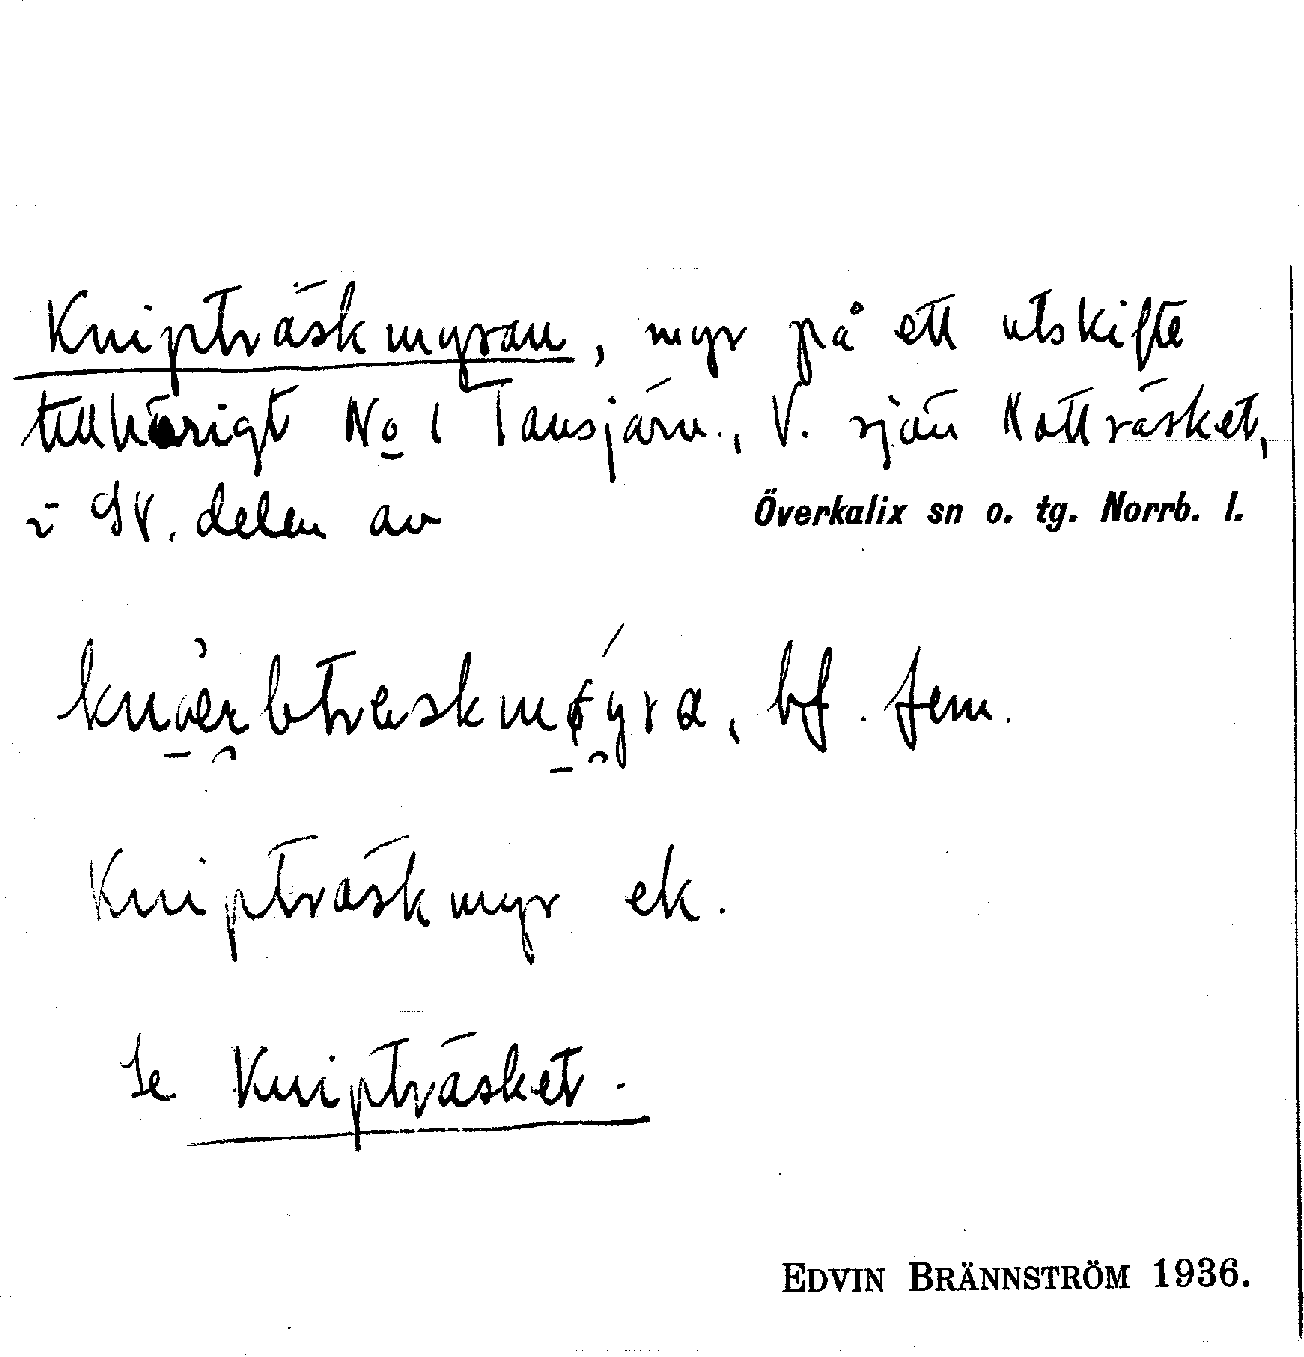 Knipträskmyran, myr på ett utskifte
tillhörigt No 1 Tansjärv., V. sjön Nattträsket,
i SV. delen av Överkalix sn o. tg. Norrb. l.
bf. fem.
Knipträskmyr ek.
Se Knipträsket.
EDVIN BRÄNNSTRÖM 1936.